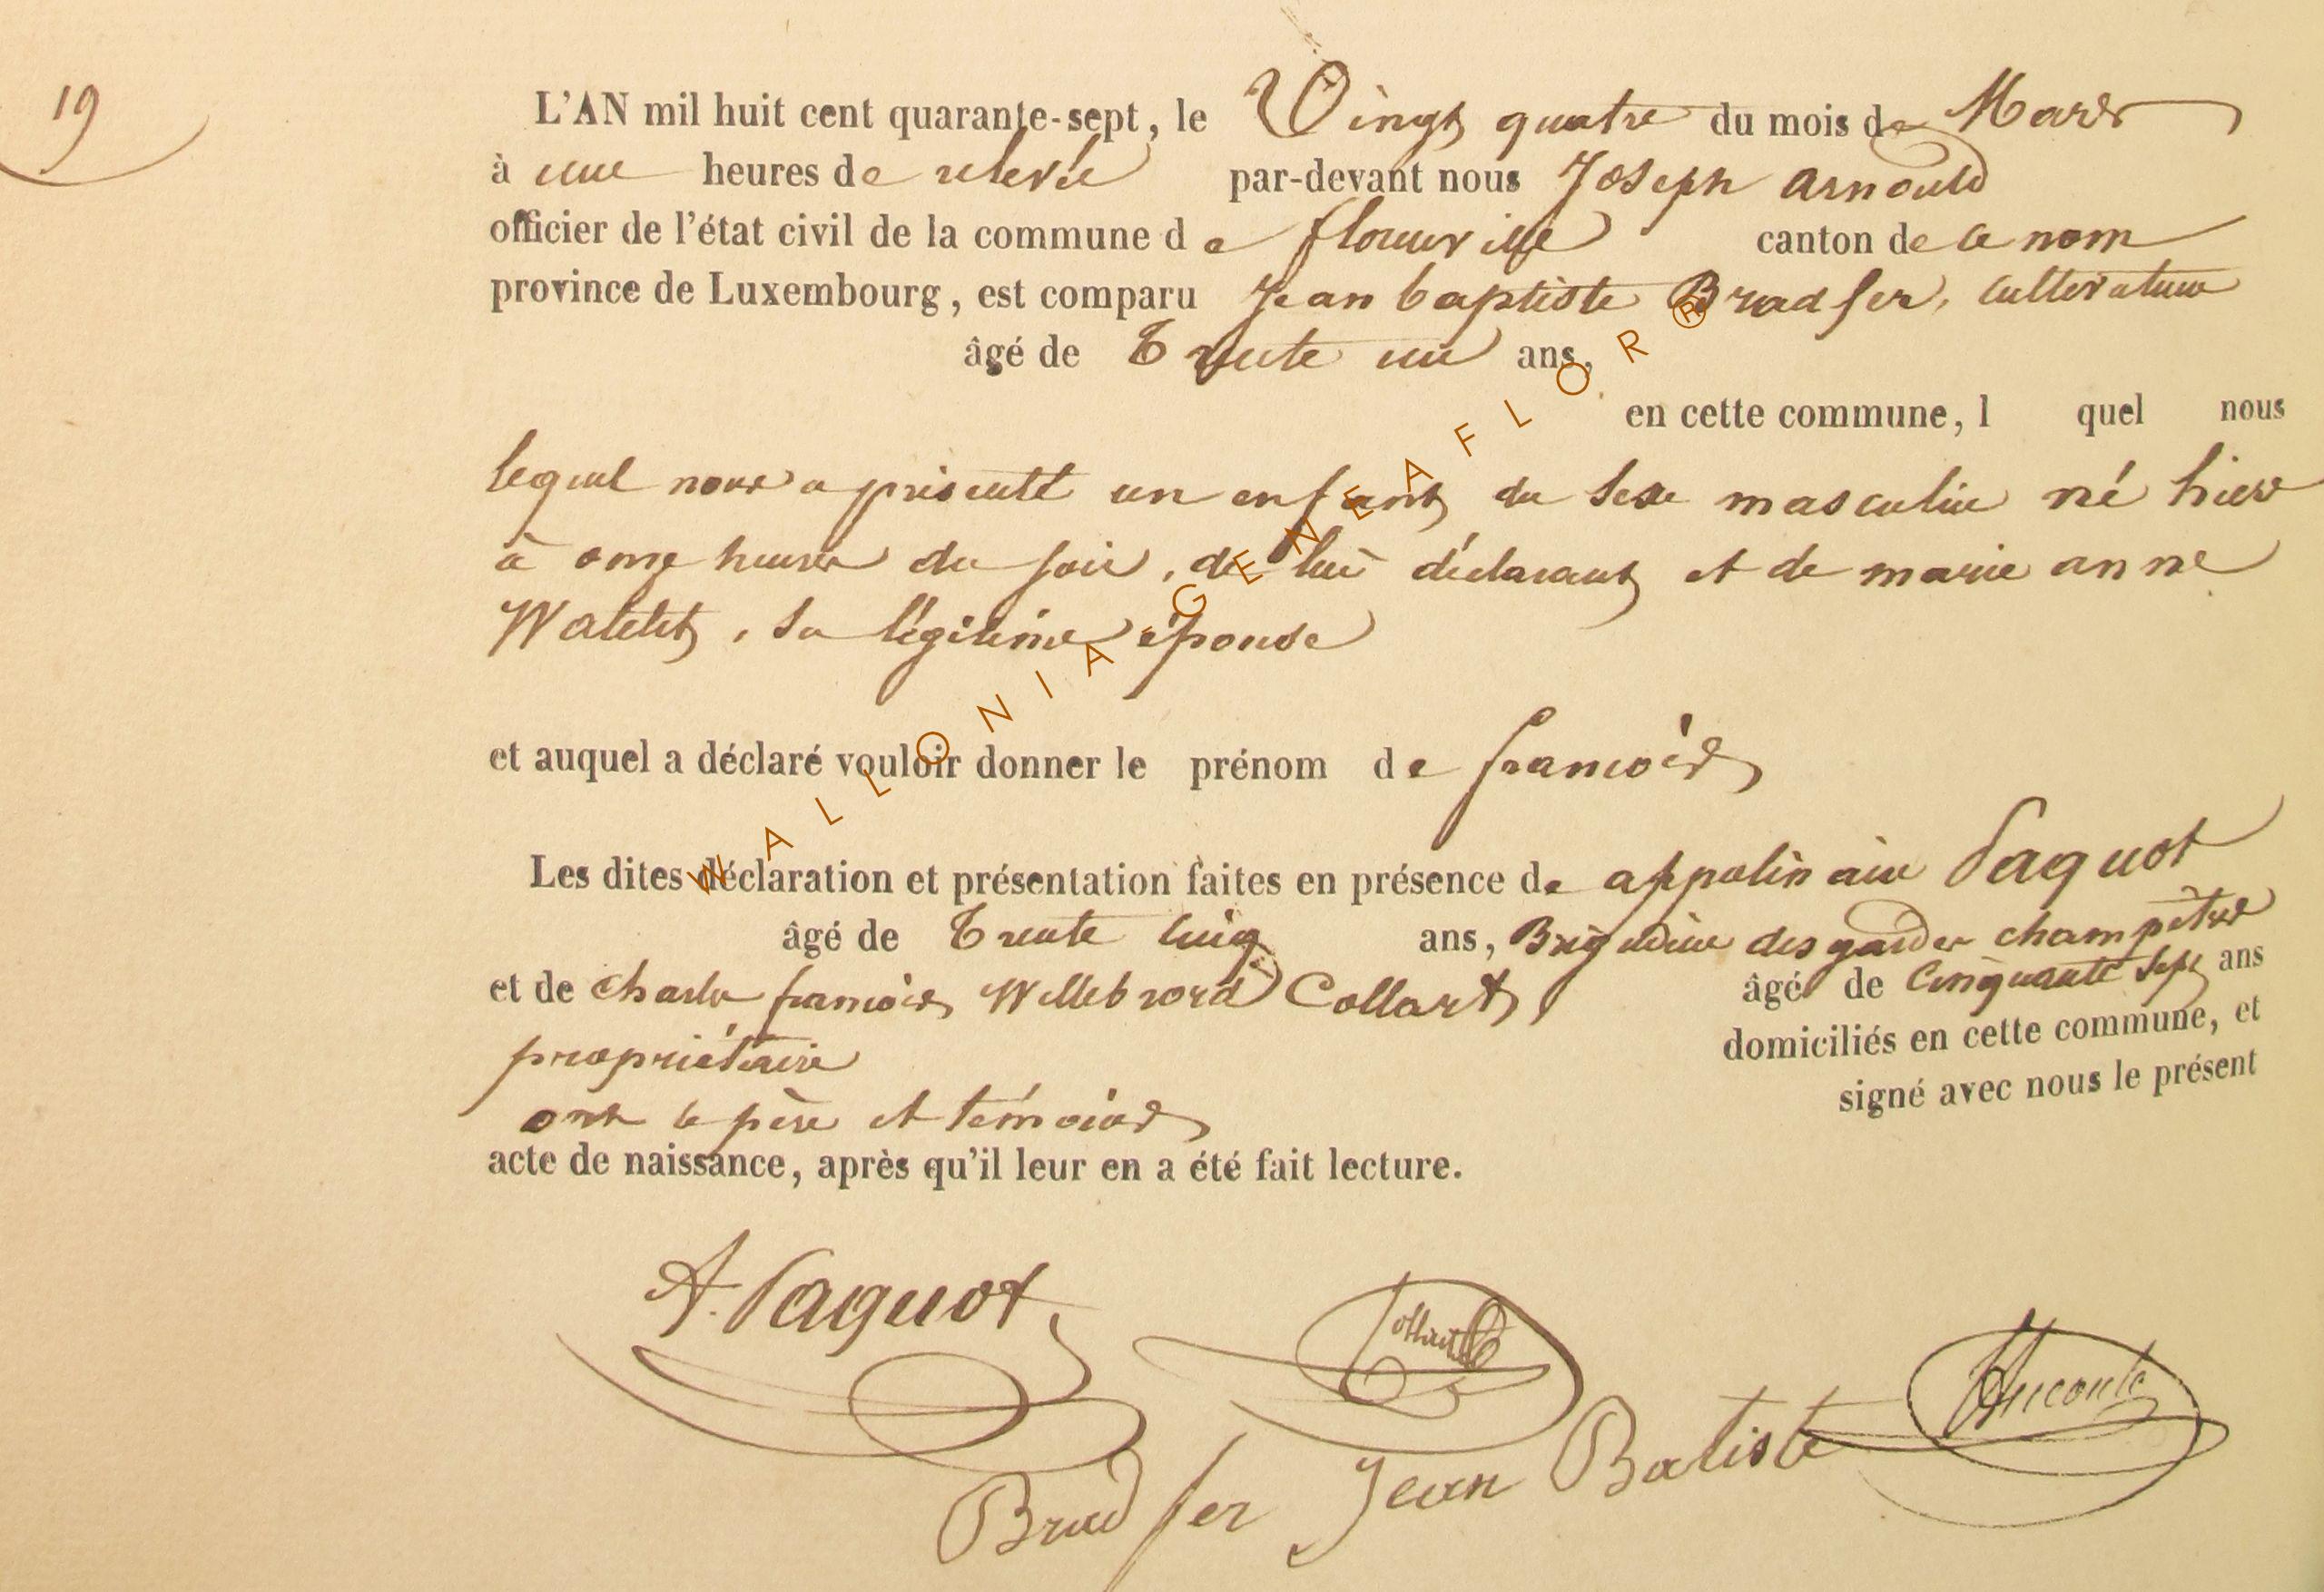 19
L'AN mil huit cent quarante-sept, le Vingt quatre du mois de Mars
à une heures de relevée par-devant nous Joseph Arnould
officier de l'état civil de la commune de florenville canton de ce nom
province de Luxembourg, est comparu Jean baptiste Bradfer, cultivateur
âgé de Trente un ans,
en cette commune, l quel nous
lequel nous a présenté un enfant du sexe masculin né hier
à onze heures du soir, de lui déclarant et de marie anne
Watelet, sa légitime épouse
et auquel a déclaré vouloir donner le prénom de françois
Les dites déclaration et présentation faites en présence de appolinaire Paquot
âgé de Trente cinq ans, Brigadier des gardes champêtres
et de charles françois Willebrord Collart, âgé de Cinquante sept ans
propriétaire domiciliés en cette commune, et
ont le père et témoins signé avec nous le présent
acte de naissance, après qu'il leur en a été fait lecture.
A. Paquot
Collart
Bradfer Jean Batiste
WALLONIA GENEAFLOR®